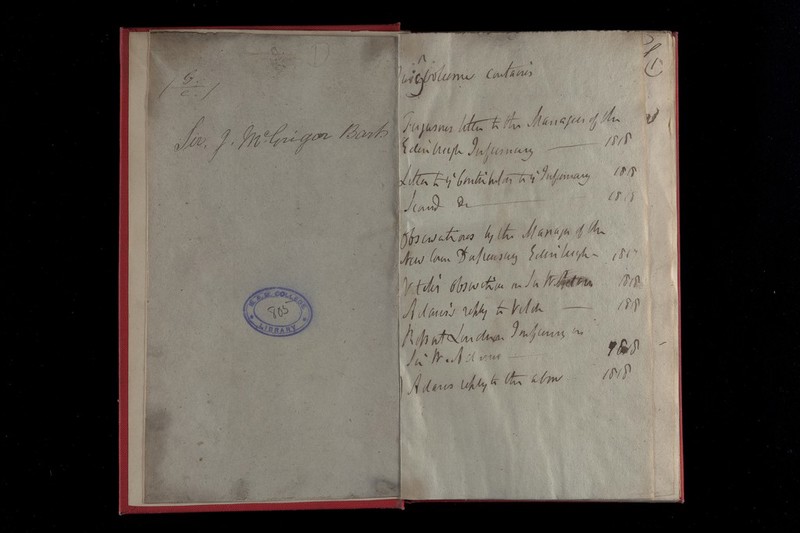 Sir. J. McGrigor Bart
R.A.M. COLLEGE
805
LIBRARY
(1)
This volume contains
Fergusons letter to the Managers of the
Edinburgh Infirmary — 1818
Letter to ye Contributors to ye Infirmary 1818
Second Do — 1818
Observations by the Managers of the
New Town Dispensary Edinburgh – 181
Vetch's observations on Sir W. Adams 1818
Adams's reply to Vetch — 1818
Report London Infirmary on
Sir W. Adams — 1818
Adams reply to the above 1818